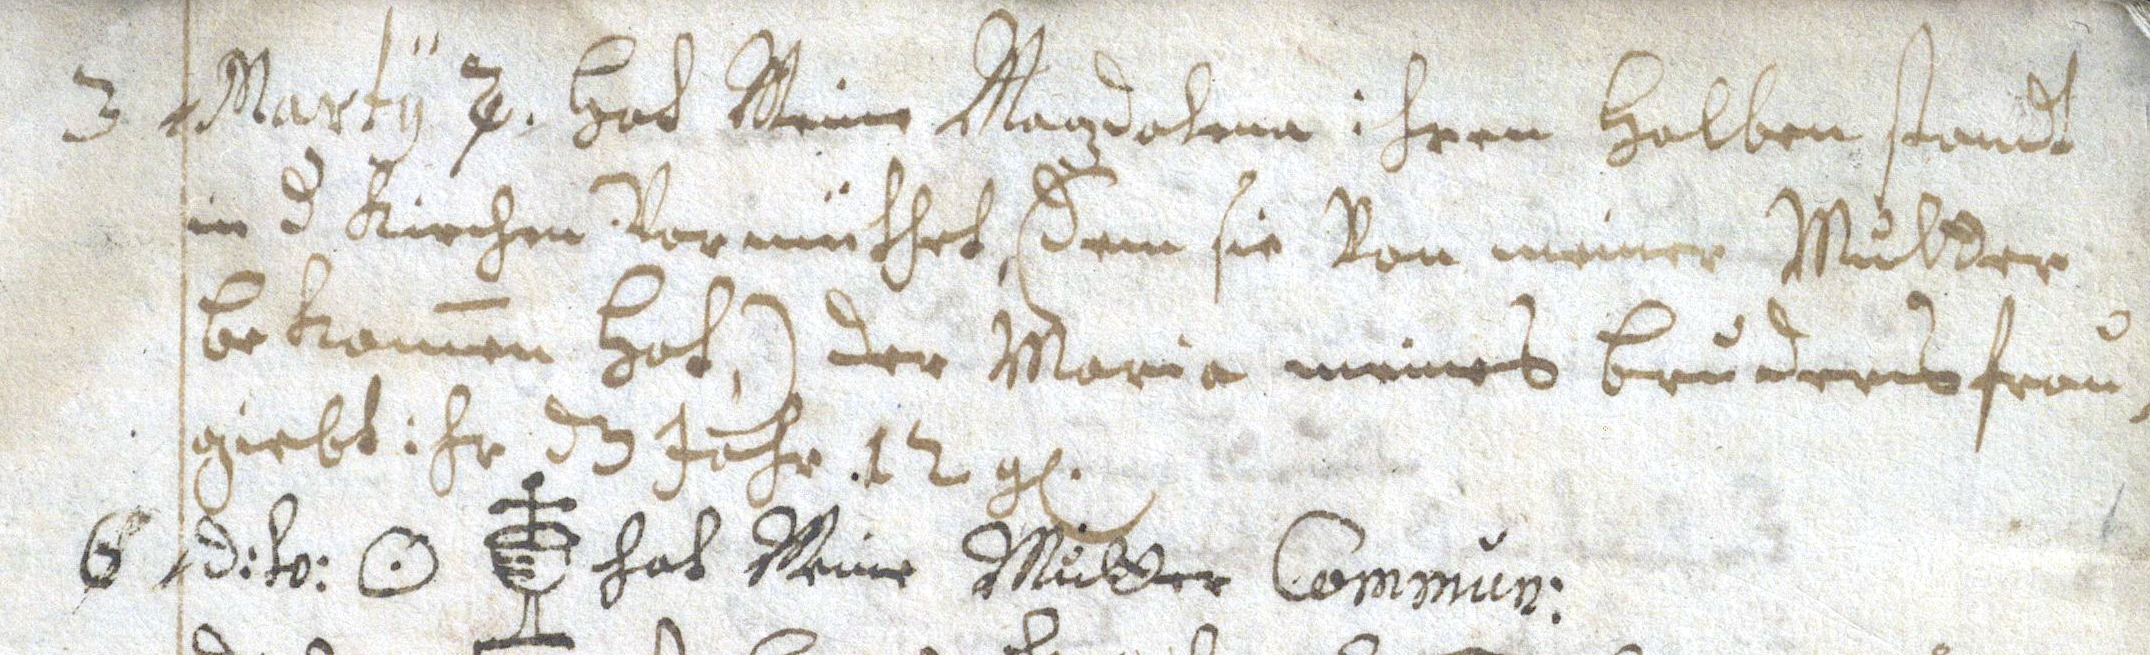 3 Martÿ ♃. hat Meine Magdalena ihren halben standt
in d Kirchen Vormüthet, (dem sie Von meiner Mutter
bekom̄en hat,) der Maria meines bruders frau,
giebt ihr dz Jahr 12 gl.
6 d:to: ☉ hat Meine Mutter Commun: